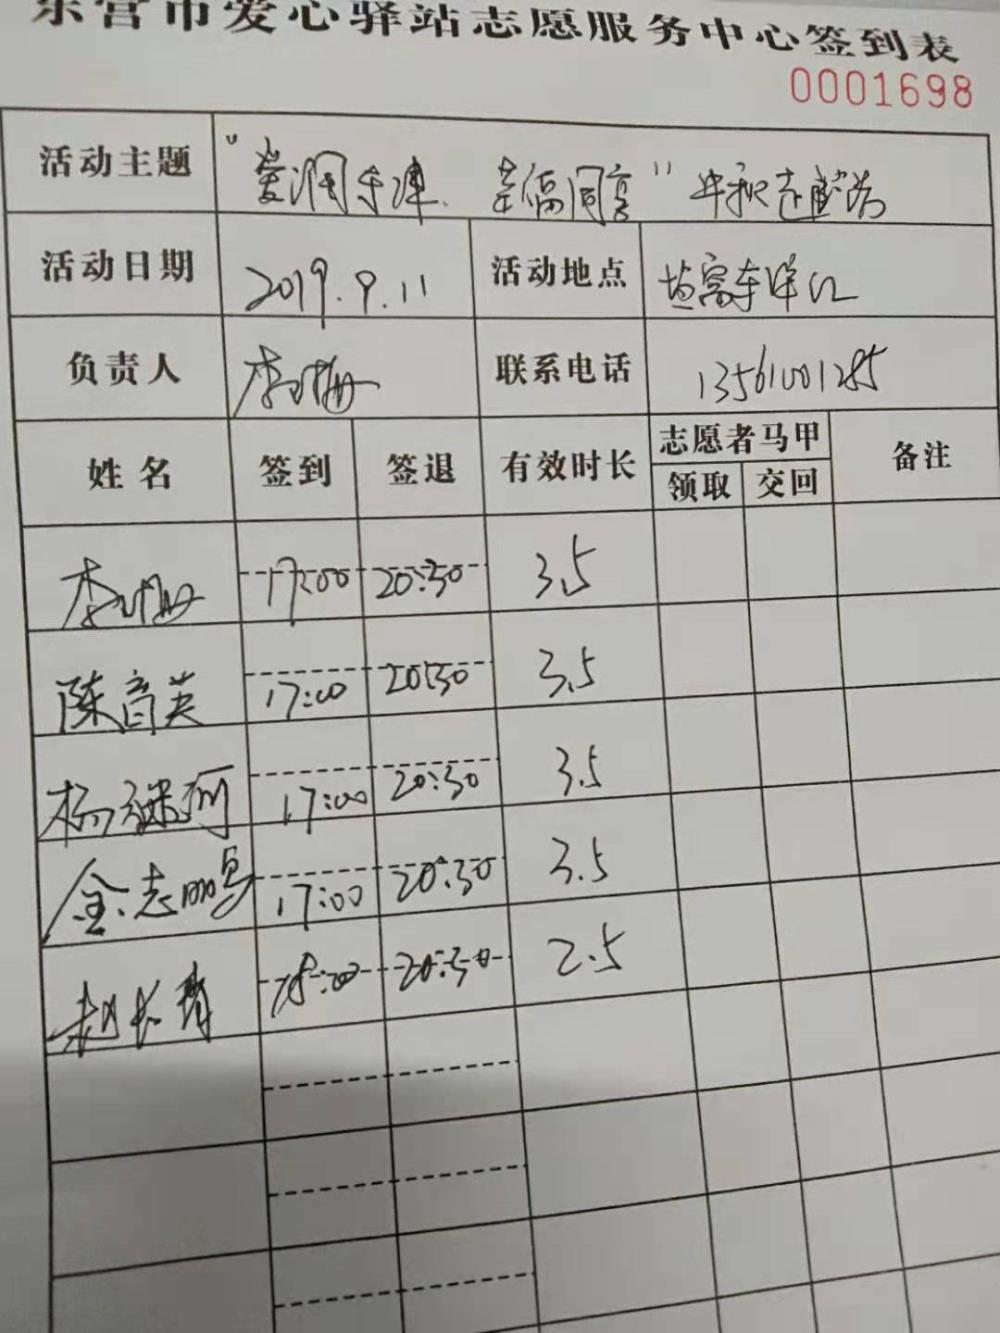 东营市爱心驿站志愿服务中心签到表
0001698
活动主题 幸福同享"
活动日期 2019.9.11 活动地点
负责人 李 联系电话 13561001285
姓名 签到 签退 有效时长 志愿者马甲 备注
领取 交回
李 17:00 20:30 3.5
陈育英 17:00 20:30 3.5
杨 17:00 20:30 3.5
金志鹏 17:00 20:30 3.5
赵长青 18:00 20:30 2.5